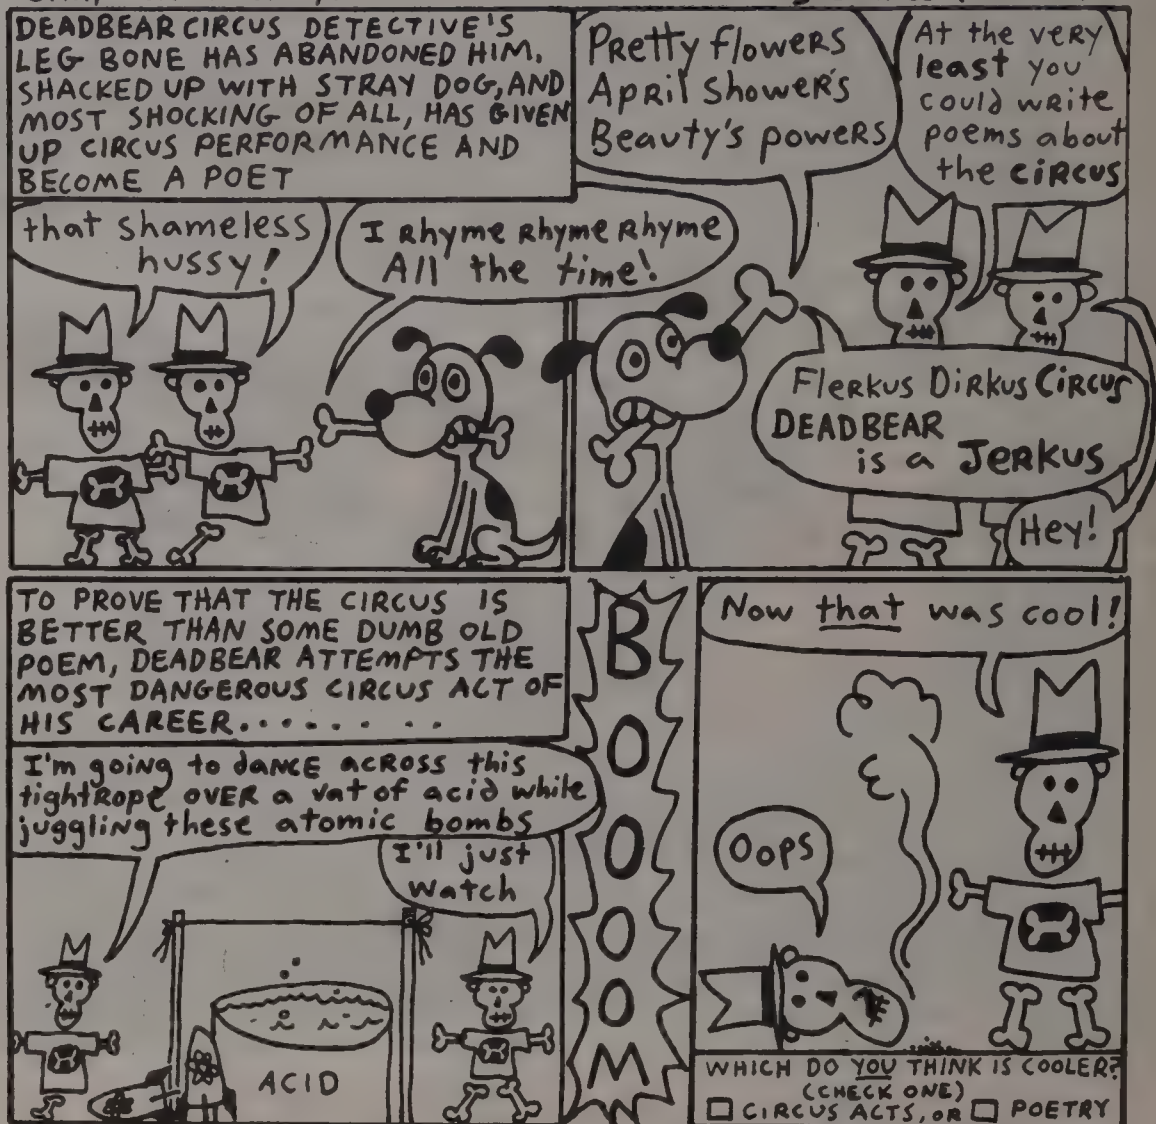 DEADBEAR CIRCUS DETECTIVE'S
LEG BONE HAS ABANDONED HIM,
SHACKED UP WITH STRAY DOG, AND
MOST SHOCKING OF ALL, HAS GIVEN
UP CIRCUS PERFORMANCE AND
BECOME A POET
that shameless
hussy!
I Rhyme Rhyme Rhyme
All the time!
Pretty flowers
April Shower's
Beauty's powers
At the very
least you
could write
poems about
the CIRCUS
Flerkus Dirkus Circus
DEADBEAR
is a Jerkus
Hey!
TO PROVE THAT THE CIRCUS IS
BETTER THAN SOME DUMB OLD
POEM, DEADBEAR ATTEMPTS THE
MOST DANGEROUS CIRCUS ACT OF
HIS CAREER........
I'm going to dance across this
tightrope over a vat of acid while
juggling these atomic bombs
I'll just
watch
ACID
BOOOOM
Now that was cool!
Oops
WHICH DO YOU THINK IS COOLER?
(CHECK ONE)
☐ CIRCUS ACTS, OR ☐ POETRY